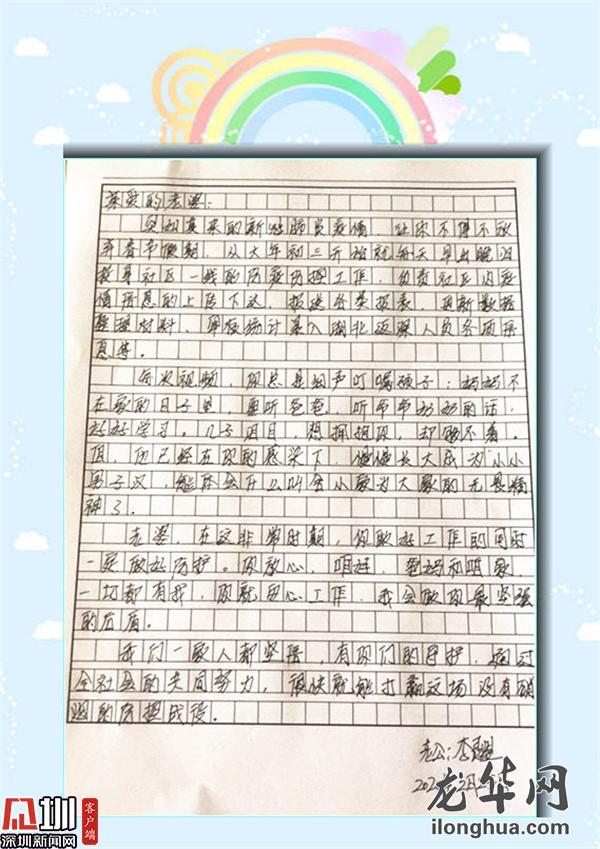 亲爱的老婆：
突如其来的新冠肺炎疫情，让你不得不放
弃春节假期，从大年初三开始就每天早出晚归
投身社区一线的防疫防控工作，负责社区内疫
情信息的上传下达，报送各类报表，更新数据
整理材料、单位统计录入湖北返深人员各项信
息等。
每次视频，你总是细声叮嘱孩子：妈妈不
在家的日子里，要听爸爸，听爷爷奶奶的话，
好好学习。儿子泪目，想拥抱你，却做不着。
但，他已经在你的感染下，健健长大成为“小小
男子汉，能体会什么叫舍小家为大家的无畏精
神了。
老婆，在这非常时期，你做好工作的同时
一定做好防护。你放心，咱娃，爸妈和咱家，
一切都有我，你就安心工作，我会做你最坚强
的后盾。
我们一家人都坚信，有你们的守护，通过
全社会的共同努力，很快就能打赢这场没有硝
烟的防控战役。
老公：李
2月
龙华网
ilonghua.com
深圳新闻网
客户端